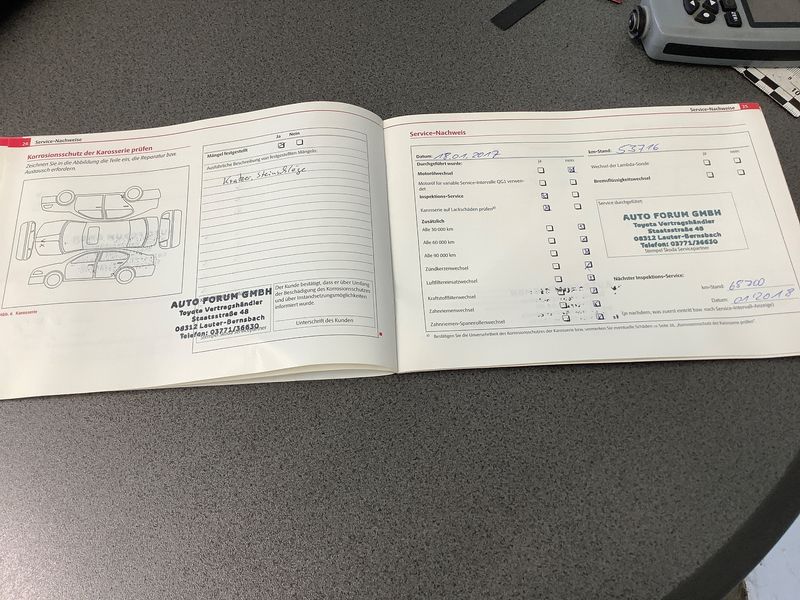 24 Service-Nachweise
Korrosionsschutz der Karosserie prüfen
Zeichnen Sie in die Abbildung die Teile ein, die Reparatur bzw.
Austausch erfordern.
Abb. 4 Karosserie
Ja Nein
Mängel festgestellt
Ausführliche Beschreibung von festgestellten Mängeln:
Kratzer, Steinschläge
AUTO FORUM GMBH
Toyota Vertragshändler
Staatsstraße 48
08312 Lauter-Bernsbach
Telefon: 03771/36630
Der Kunde bestätigt, dass er über Umfang
der Beschädigung des Korrosionsschutzes
und über Instandsetzungsmöglichkeiten
informiert wurde.
Unterschrift des Kunden
Service-Nachweise 25
Service-Nachweis
Datum: 18.01.2017
km-Stand: 53716
Durchgeführt wurde: ja nein
Motorölwechsel
Motoröl für variable Service-Intervalle QG1 verwen-
det
Inspektions-Service
Karosserie auf Lackschäden prüfen
Zusätzlich
Alle 30 000 km
Alle 60 000 km
Alle 90 000 km
Zündkerzenwechsel
Luftfiltereinsatzwechsel
Kraftstofffilterwechsel
Zahnriemenwechsel
Zahnriemen-Spannrollenwechsel
ja nein
Wechsel der Lambda-Sonde
Bremsflüssigkeitswechsel
Service durchgeführt
AUTO FORUM GMBH
Toyota Vertragshändler
Staatsstraße 48
08312 Lauter-Bernsbach
Telefon: 03771/36630
Stempel Škoda Servicepartner
Nächster Inspektions-Service:
km-Stand: 68700
Datum: 01.2018
(je nachdem, was zuerst eintritt bzw. nach Service-Intervall-Anzeige)